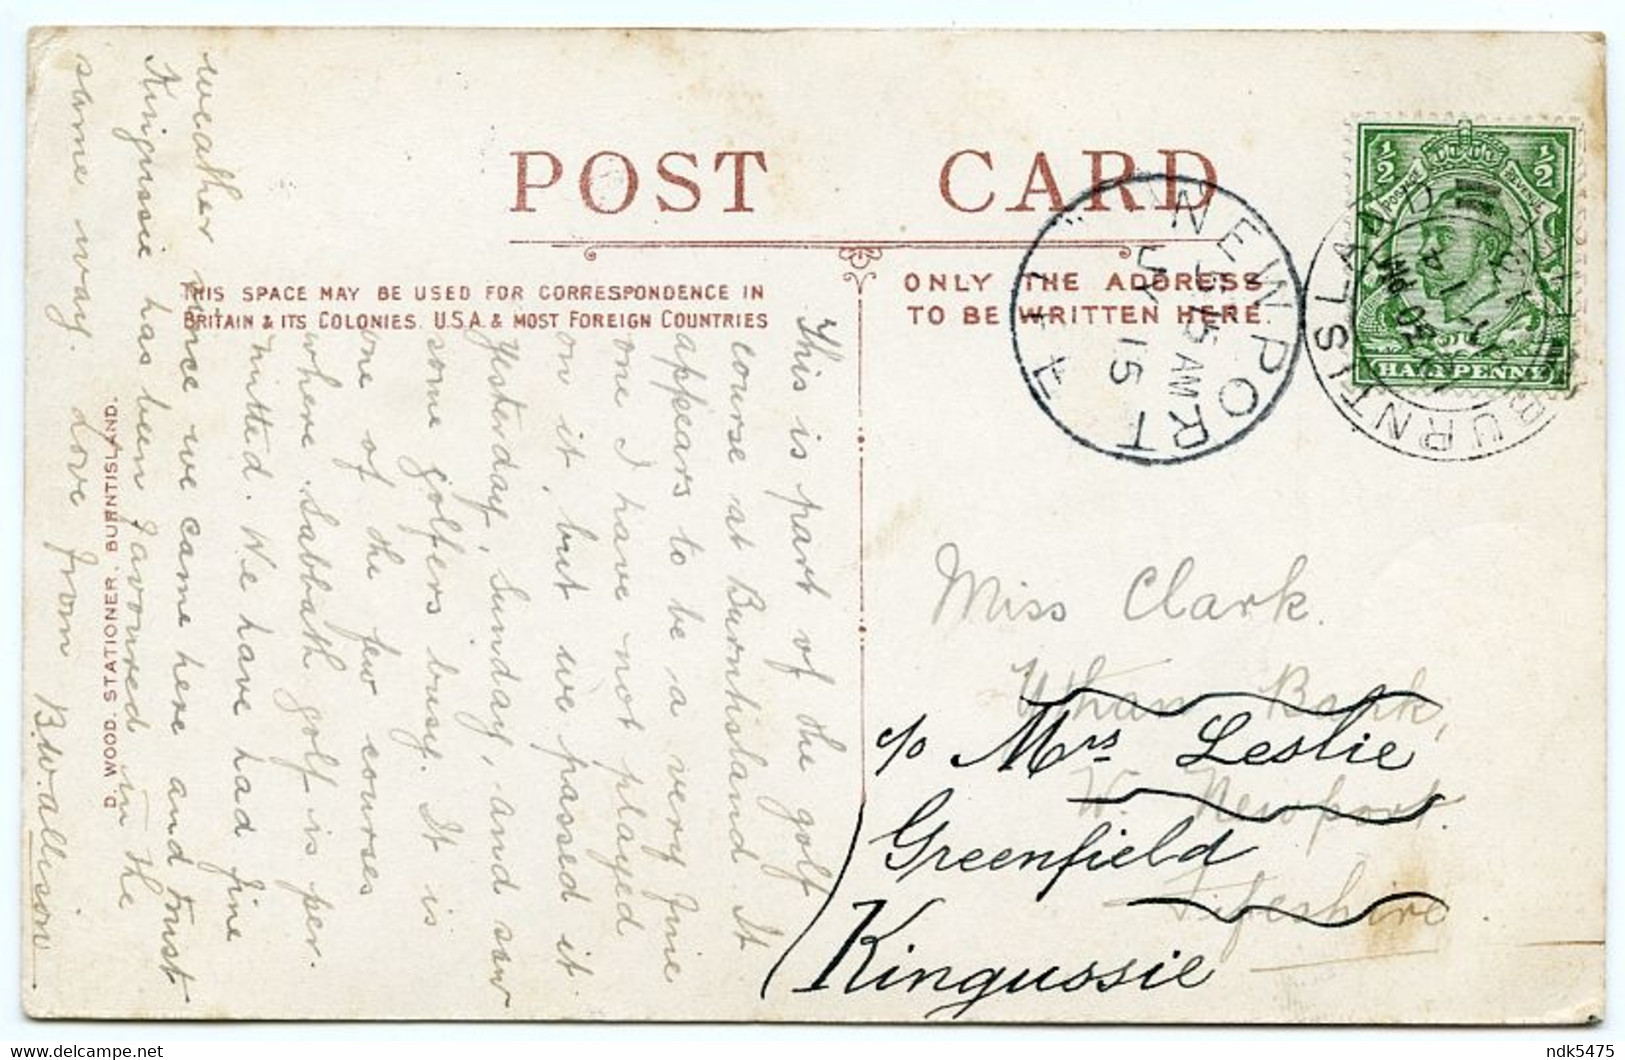 POST CARD
THIS SPACE MAY BE USED FOR CORRESPONDENCE IN
BRITAIN & ITS COLONIES. U.S.A. & MOST FOREIGN COUNTRIES
ONLY THE ADDRESS
TO BE WRITTEN HERE.
½ ½
POSTAGE REVENUE
HALFPENNY
NEWPORT
5 AM
JY
15
BURNTISLAND
This is part of the golf
course at Burntisland. It
appears to be a very fine
one I have not played
on it, but we passed it
yesterday, Sunday, and saw
some golfers busy. It is
one of the few courses
where Sabbath golf is per-
mitted. We have had fine
weather since we came here and trust
Kingussie has been favoured in the
same way. Love from
B.W. Allison
D. WOOD. STATIONER. BURNTISLAND.
Miss Clark.
Bank,
W. Newport.
Fifeshire
c/o Mrs Leslie
Greenfield
Kingussie
ndk5475